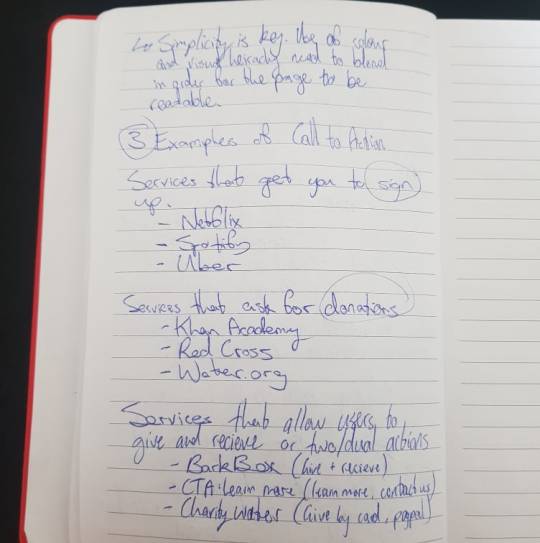 ↳ Simplicity is key. Use of colour
and visual heirachy need to blend
in order for the page to be
readable.
3 Examples of Call to Action
Services that get you to sign
up.
- Netflix
- Spotify
- Uber
Services that ask for donations
- Khan Academy
- Red Cross
- Water.org
Services that allow users to
give and recieve or two/dual actions
- BackBox (Give + recieve)
- CTA: Learn more (learn more, contact us)
- Charity Water (Give by card, paypal)